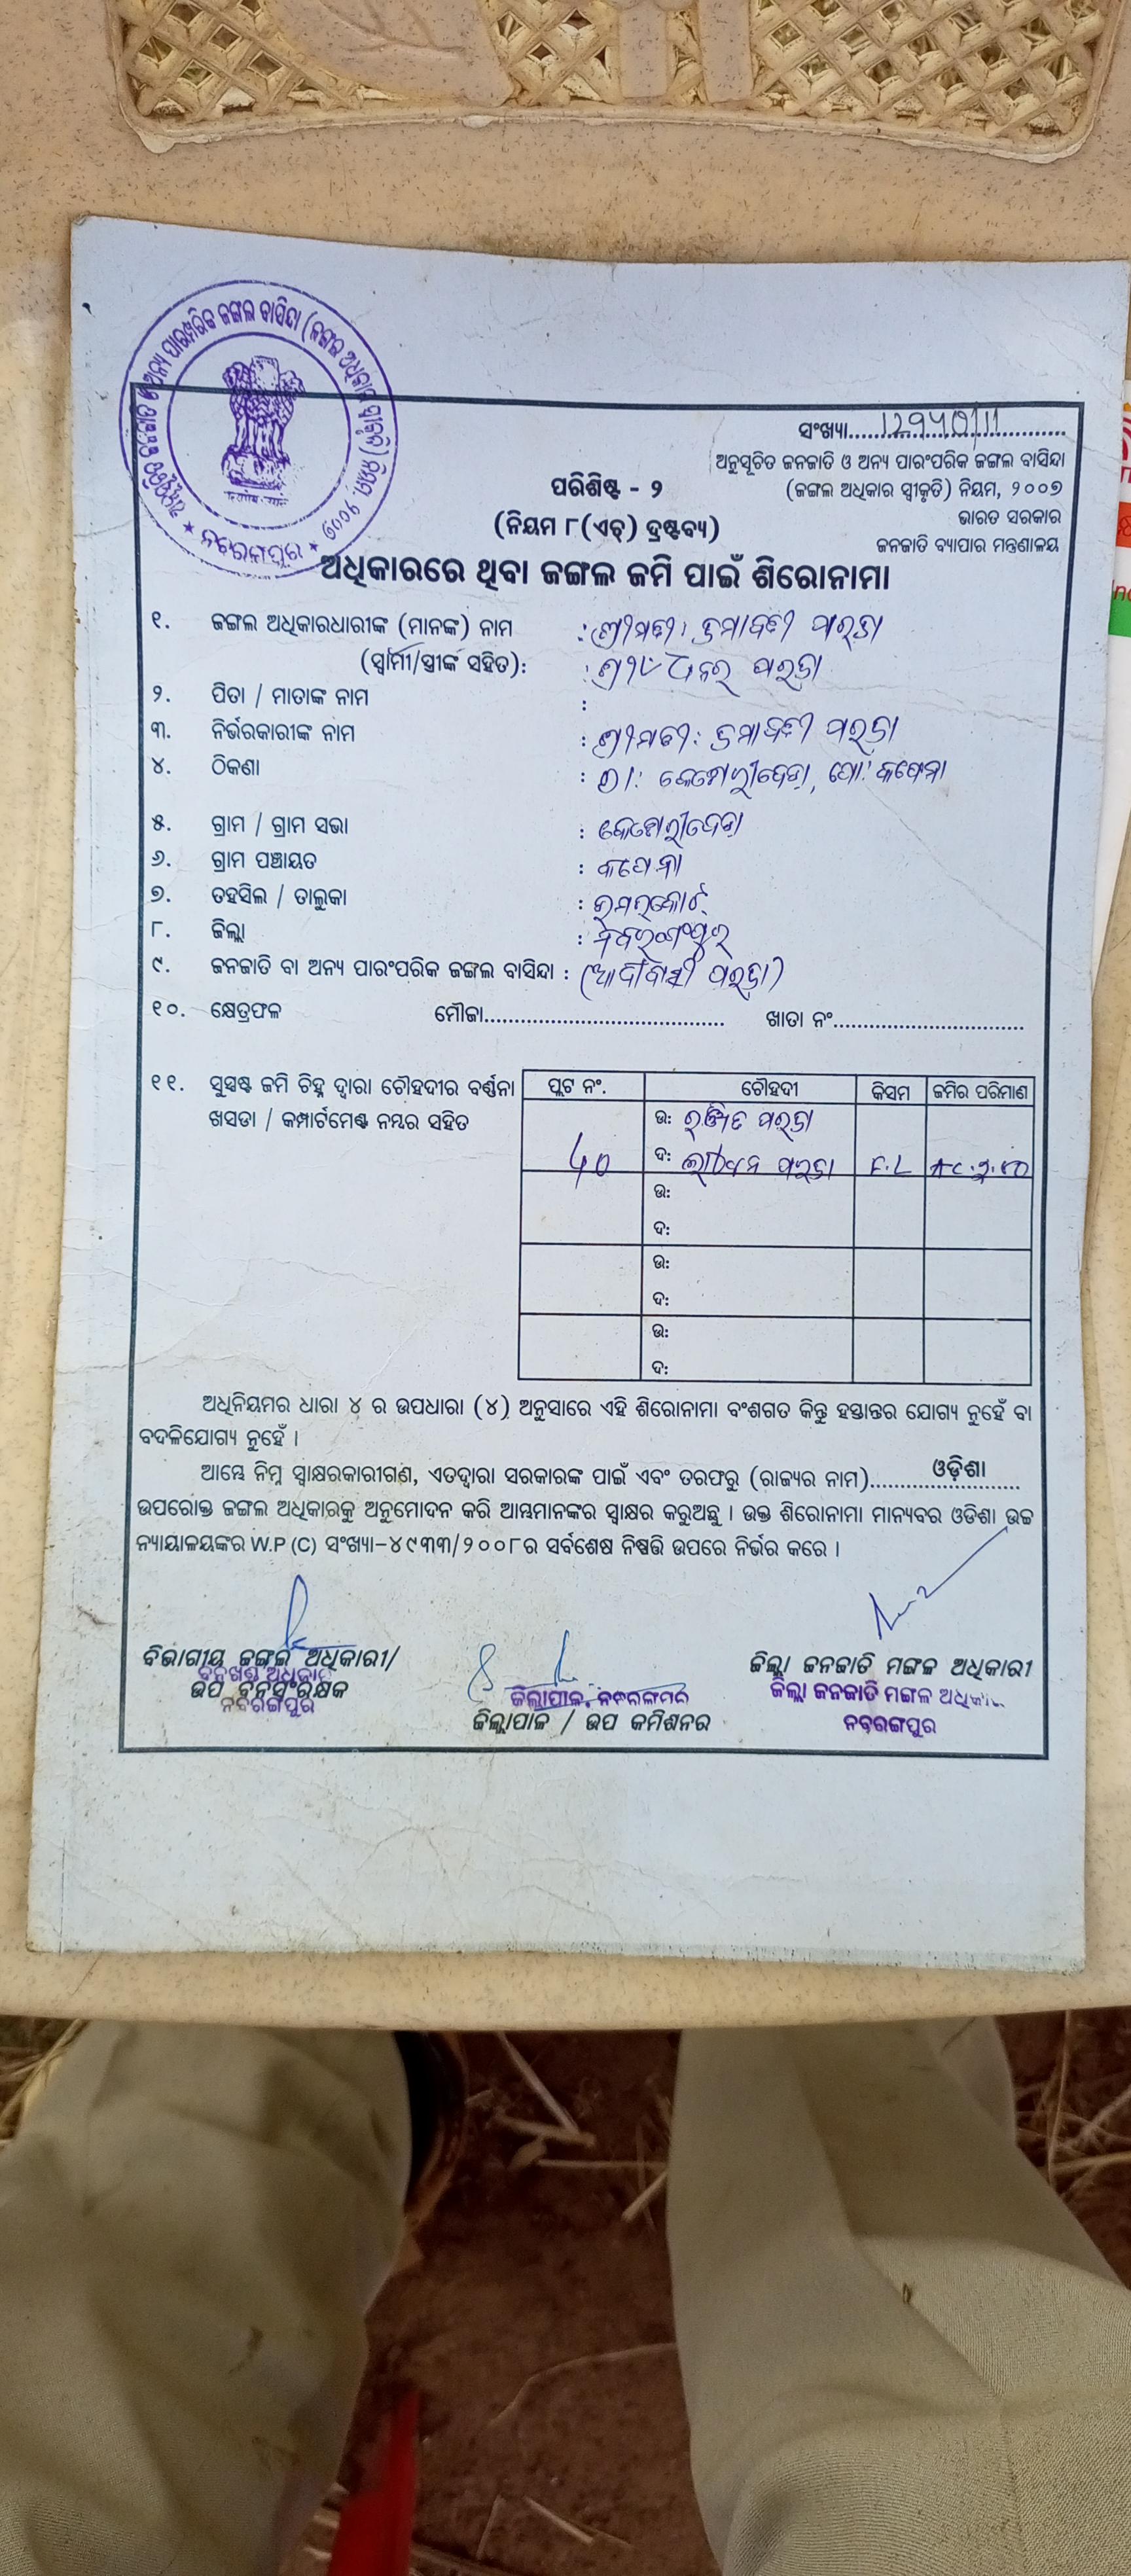 ସଂଖ୍ୟା
ଅନୁସୂଚିତ ଜନଜାତି ଓ ଅନ୍ୟ ପାରଂପରିକ ଜଙ୍ଗଲ ବାସିନ୍ଦା
(ଜଙ୍ଗଲ ଅଧିକାର ସ୍ୱୀକୃତି) ନିୟମ, ୨୦୦୭
ଭାରତ ସରକାର
ଜନଜାତି ବ୍ୟାପାର ମନ୍ତ୍ରଣାଳୟ
ପରିଶିଷ୍ଟ - ୨
(ନିୟମ ୮(ଏଚ୍) ଦ୍ରଷ୍ଟବ୍ୟ)
ଅଧିକାରରେ ଥିବା ଜଙ୍ଗଲ ଜମି ପାଇଁ ଶିରୋନାମା
୧. ଜଙ୍ଗଲ ଅଧିକାରଧାରୀଙ୍କ (ମାନଙ୍କ) ନାମ : ଶ୍ରୀମତୀ ପରଜା
(ସ୍ୱାମୀ/ସ୍ତ୍ରୀଙ୍କ ସହିତ): : ପରଜା
୨. ପିତା / ମାତାଙ୍କ ନାମ :
୩. ନିର୍ଭରକାରୀଙ୍କ ନାମ : ଶ୍ରୀମତୀ ପରଜା
୪. ଠିକଣା :
୫. ଗ୍ରାମ / ଗ୍ରାମ ସଭା :
୬. ଗ୍ରାମ ପଞ୍ଚାୟତ :
୭. ତହସିଲ / ତାଲୁକା : ଉମରକୋଟ
୮. ଜିଲ୍ଲା : ନବରଂଗପୁର
୯. ଜନଜାତି ବା ଅନ୍ୟ ପାରଂପରିକ ଜଙ୍ଗଲ ବାସିନ୍ଦା : (ଆଦୀବାସୀ ପରଜା)
୧୦. କ୍ଷେତ୍ରଫଳ ମୌଜା ଖାତା ନଂ
୧୧. ସୁସ୍ପଷ୍ଟ ଜମି ଚିହ୍ନ ଦ୍ୱାରା ଚୌହଦୀର ବର୍ଣ୍ଣନା
ଖସଡା / କମ୍ପାର୍ଟମେଣ୍ଟ ନମ୍ବର ସହିତ
ପ୍ଲଟ ନଂ. ଚୌହଦୀ କିସମ ଜମିର ପରିମାଣ
ଉ: ପରଜା
ଦ: ପରଜା F.L
ଉ:
ଦ:
ଉ:
ଦ:
ଉ:
ଦ:
ଅଧିନିୟମର ଧାରା ୪ ର ଉପଧାରା (୪) ଅନୁସାରେ ଏହି ଶିରୋନାମା ବଂଶଗତ କିନ୍ତୁ ହସ୍ତାନ୍ତର ଯୋଗ୍ୟ ନୁହେଁ ବା
ବଦଳିଯୋଗ୍ୟ ନୁହେଁ ।
ଆମ୍ଭେ ନିମ୍ନ ସ୍ୱାକ୍ଷରକାରୀଗଣ, ଏତଦ୍ୱାରା ସରକାରଙ୍କ ପାଇଁ ଏବଂ ତରଫରୁ (ରାଜ୍ୟର ନାମ) ଓଡ଼ିଶା
ଉପରୋକ୍ତ ଜଙ୍ଗଲ ଅଧିକାରକୁ ଅନୁମୋଦନ କରି ଆମ୍ଭମାନଙ୍କର ସ୍ୱାକ୍ଷର କରୁଅଛୁ । ଉକ୍ତ ଶିରୋନାମା ମାନ୍ୟବର ଓଡିଶା ଉଚ୍ଚ
ନ୍ୟାୟାଳୟଙ୍କର W.P (C) ସଂଖ୍ୟା-୪୯୩୩/୨୦୦୮ର ସର୍ବଶେଷ ନିଷ୍ପତ୍ତି ଉପରେ ନିର୍ଭର କରେ ।
ବିଭାଗୀୟ ଜଙ୍ଗଲ ଅଧିକାରୀ/
ଉପ ବନସଂରକ୍ଷକ
ନବରଙ୍ଗପୁର
ଜିଲ୍ଲାପାଳ, ନବରଙ୍ଗପୁର
ଜିଲ୍ଲାପାଳ / ଉପ କମିଶନର
ଜିଲ୍ଲା ଜନଜାତି ମଙ୍ଗଳ ଅଧିକାରୀ
ଜିଲ୍ଲା ଜନଜାତି ମଙ୍ଗଳ
ନବରଙ୍ଗପୁର